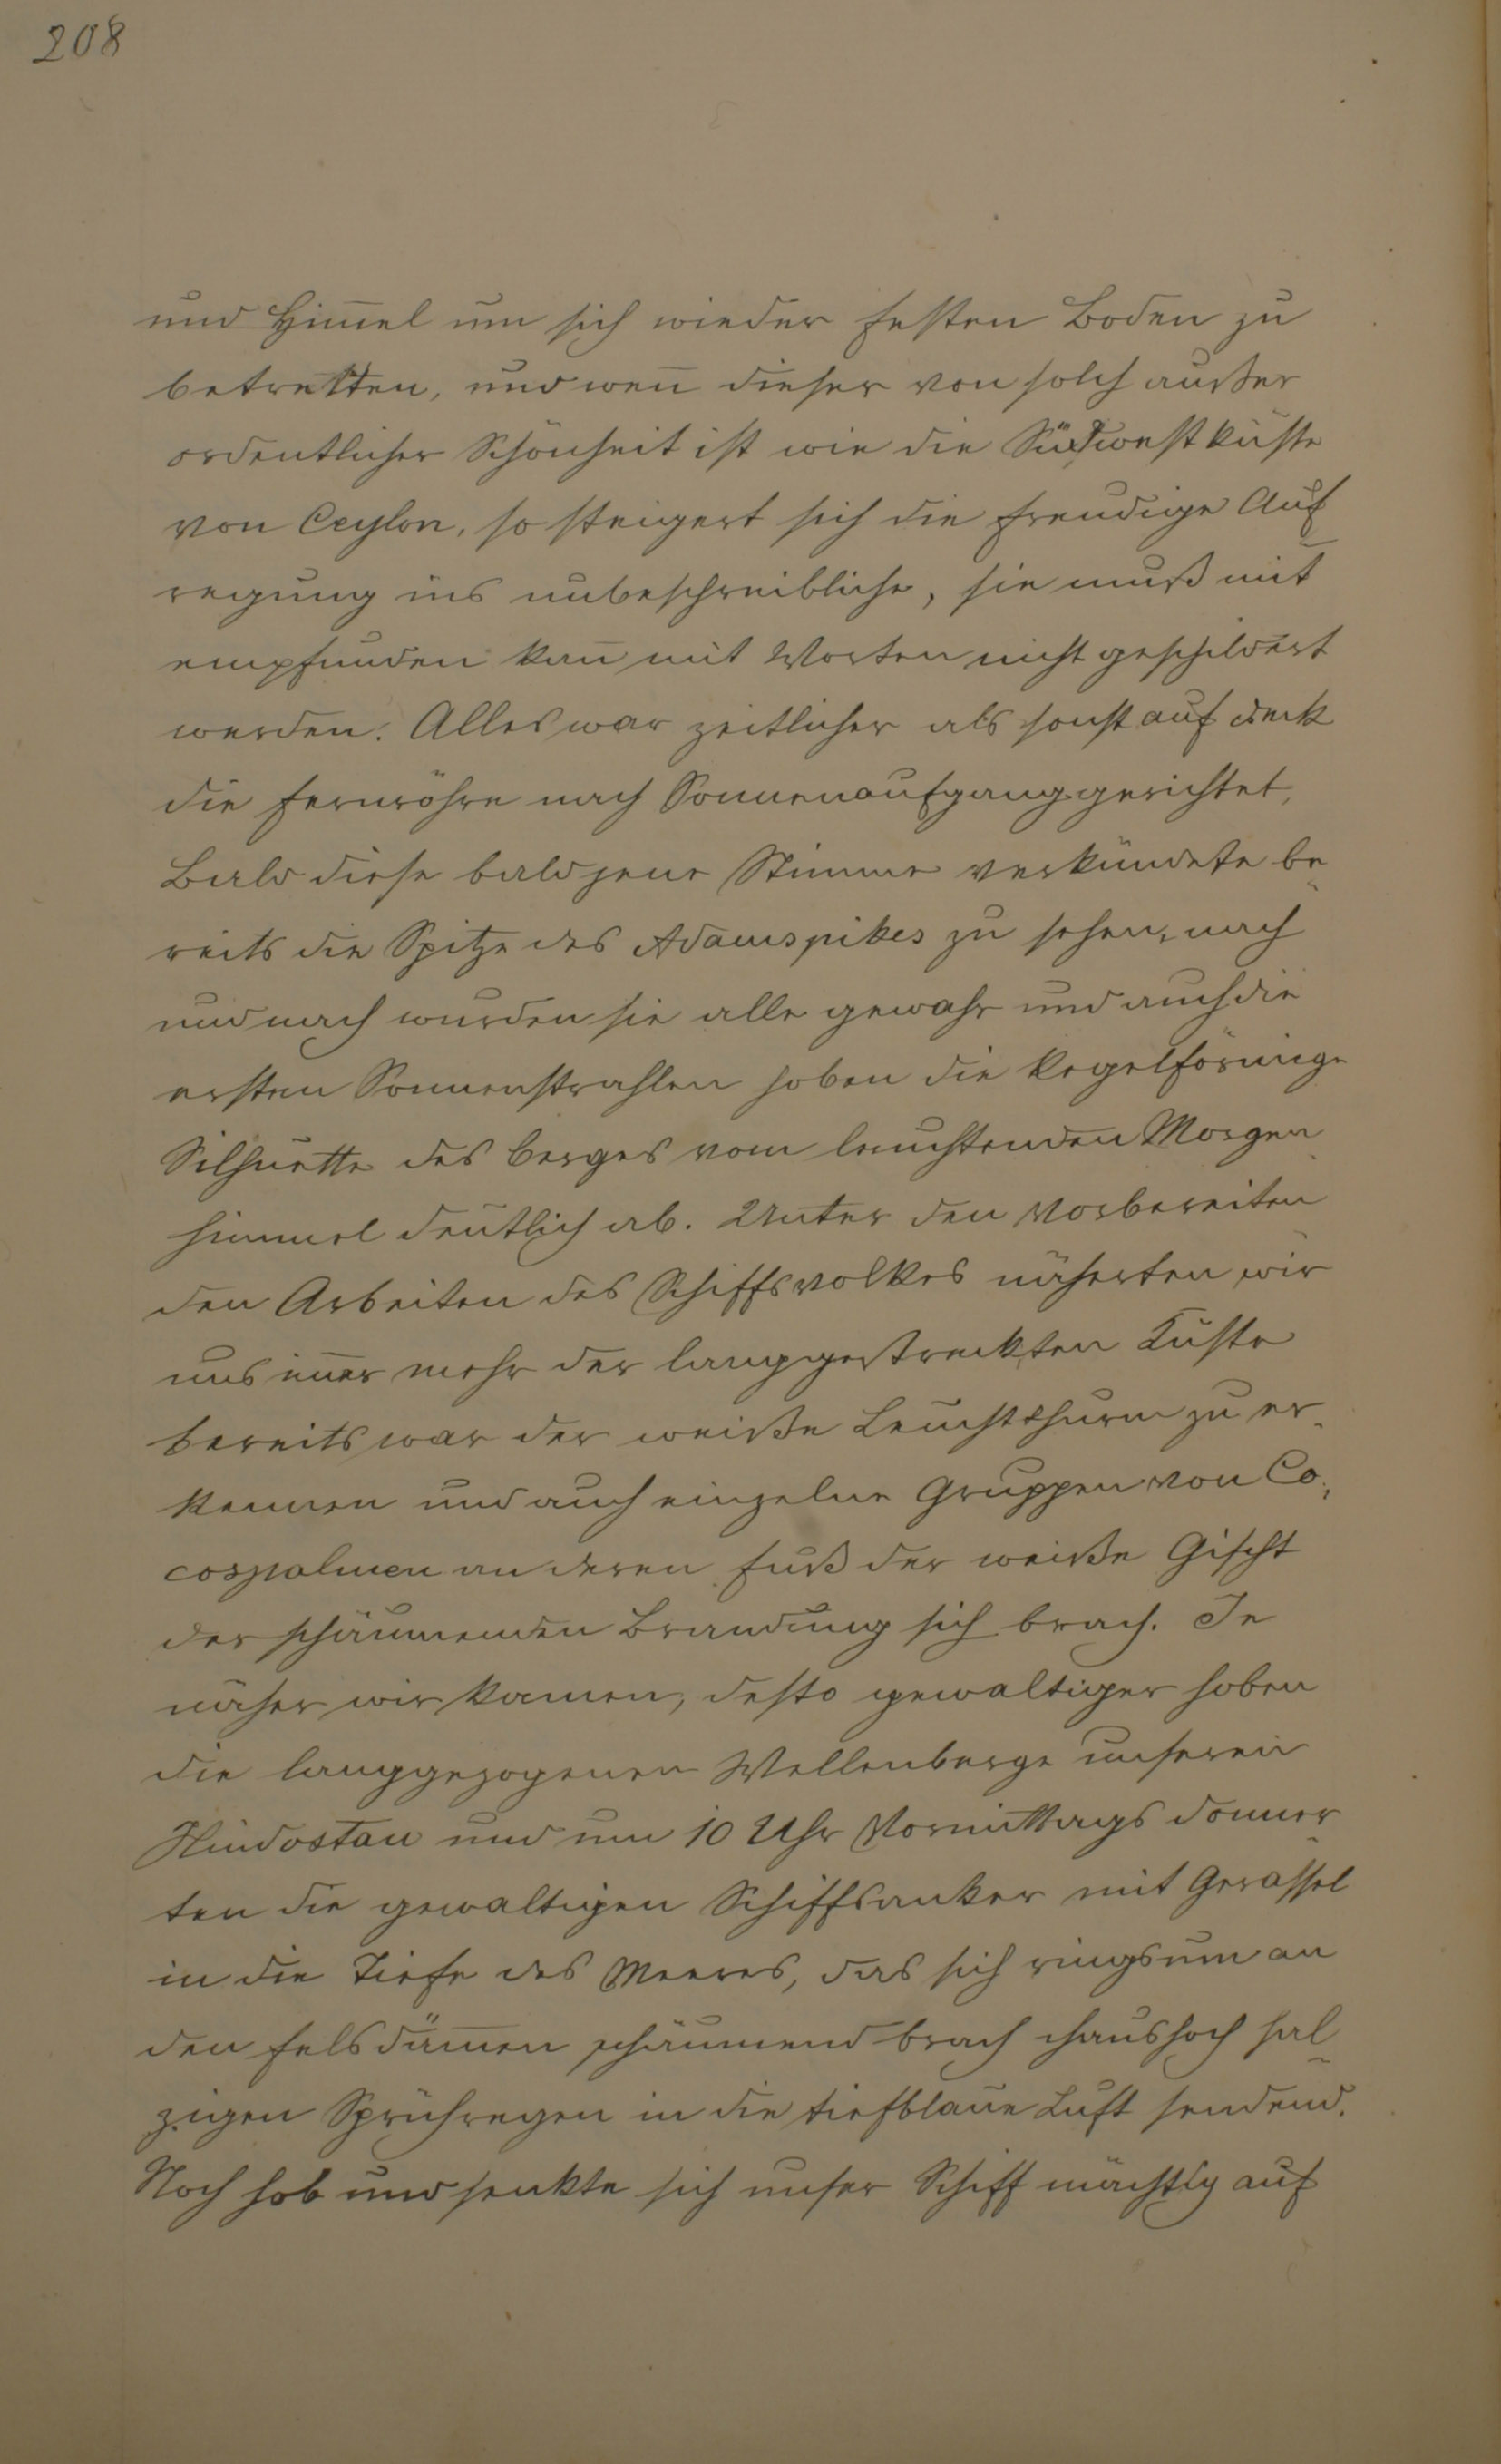 208
und Him̅el um sich wieder festen Boden zu
betretten, und wen̅ dieser von solch außer
ordentlicher Schönheit ist wie die Südwestküste
von Ceylon, so steigert sich die freudige Auf
regung ins unbeschreibliche, sie muß mit
empfunden kan̅ mit Worten nicht geschildert
werden. Alles war zeitlicher als sonst auf deck
die Fernröhre nach Sonnenaufgang gerichtet,
Bald diese bald jene Stimme verkündete be
reits die Spitze des Adamspikes zu sehen, nach
und nach wurden sie alle gewahr und auch die
ersten Sonnenstrahlen hoben die kegelförmige
Silhuette des berges vom leuchtenden Morgen
himmel deutlich ab. Unter den vorbereiten
den Arbeiten des Schiffsvolkes näherten wir
uns im̅er mehr der langgestreckten Küste
bereits war der weiße Leuchtthurm zu er-
kennen und auch einzelne Gruppen von Co-
cospalmen an deren Fuß der weiße Gischt
der schäumenden Brandung sich brach. Je
näher wir kamen, desto gewaltiger hoben
die langgezogenen Wellenberge unseren
Hindostan und um 10 Uhr Vormittags donner
ten die gewaltigen Schiffsanker mit Gerassel
in die Tiefe des Meeres, das sich ringsum an
den Felsdäm̅en schäumend brach haushoch sal
zigen Sprühregen in die tiefblaue Luft sendend.
Noch hob und senkte sich unser Schiff mächtig auf